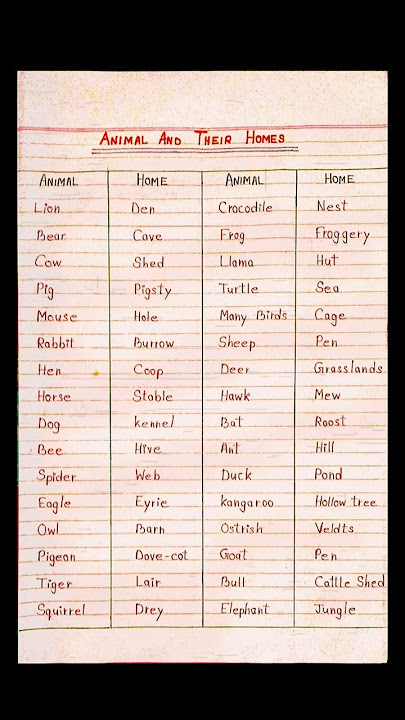 ANIMAL AND THEIR HOMES
ANIMAL HOME ANIMAL HOME
Lion Den Crocodile Nest
Bear Cave Frog Froggery
Cow Shed Llama Hut
Pig Pigsty Turtle Sea
Mouse Hole Many Birds Cage
Rabbit Burrow Sheep Pen
Hen Coop Deer Grasslands
Horse Stable Hawk Mew
Dog kennel Bat Roost
Bee Hive Ant Hill
Spider Web Duck Pond
Eagle Eyrie kangaroo Hollow tree
Owl Barn Ostrish Veldts
Pigeon Dove-cot Goat Pen
Tiger Lair Bull Cattle Shed
Squirrel Drey Elephant Jungle